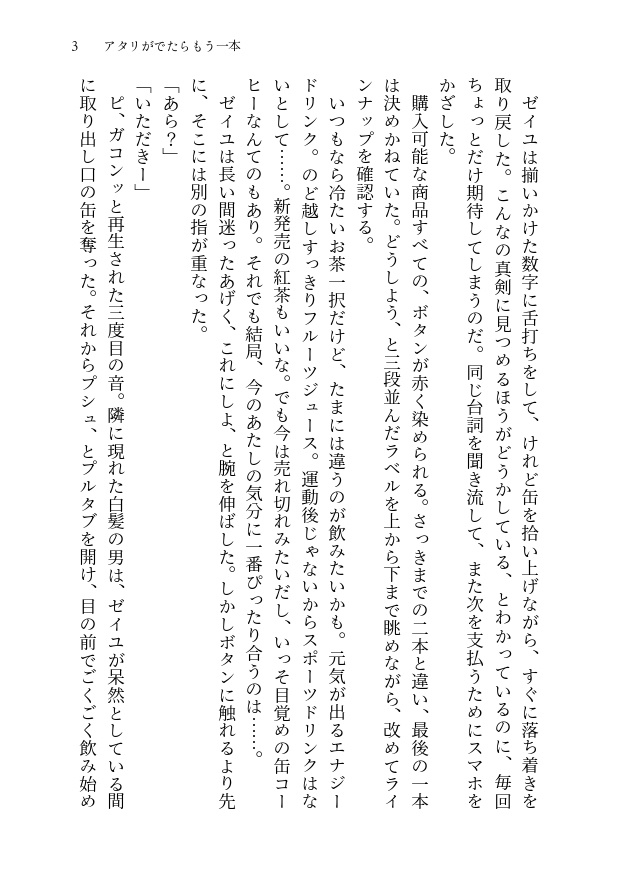 3 アタリがでたらもう一本
ゼイユは揃いかけた数字に舌打ちをして、けれど缶を拾い上げながら、すぐに落ち着きを
取り戻した。こんなの真剣に見つめるほうがどうかしている、とわかっているのに、毎回
ちょっとだけ期待してしまうのだ。同じ台詞を聞き流して、また次を支払うためにスマホを
かざした。
購入可能な商品すべての、ボタンが赤く染められる。さっきまでの二本と違い、最後の一本
は決めかねていた。どうしよう、と三段並んだラベルを上から下まで眺めながら、改めてライ
ンナップを確認する。
いつもなら冷たいお茶一択だけど、たまには違うのが飲みたいかも。元気が出るエナジー
ドリンク。のど越しすっきりフルーツジュース。運動後じゃないからスポーツドリンクはな
いとして……。新発売の紅茶もいいな。でも今は売れ切れみたいだし、いっそ目覚めの缶コー
ヒーなんてのもあり。それでも結局、今のあたしの気分に一番ぴったり合うのは……。
ゼイユは長い間迷ったあげく、これにしよ、と腕を伸ばした。しかしボタンに触れるより先
に、そこには別の指が重なった。
「あら？」
「いただきー」
ピ、ガコンッと再生された三度目の音。隣に現れた白髪の男は、ゼイユが呆然としている間
に取り出し口の缶を奪った。それからプシュ、とプルタブを開け、目の前でごくごく飲み始め